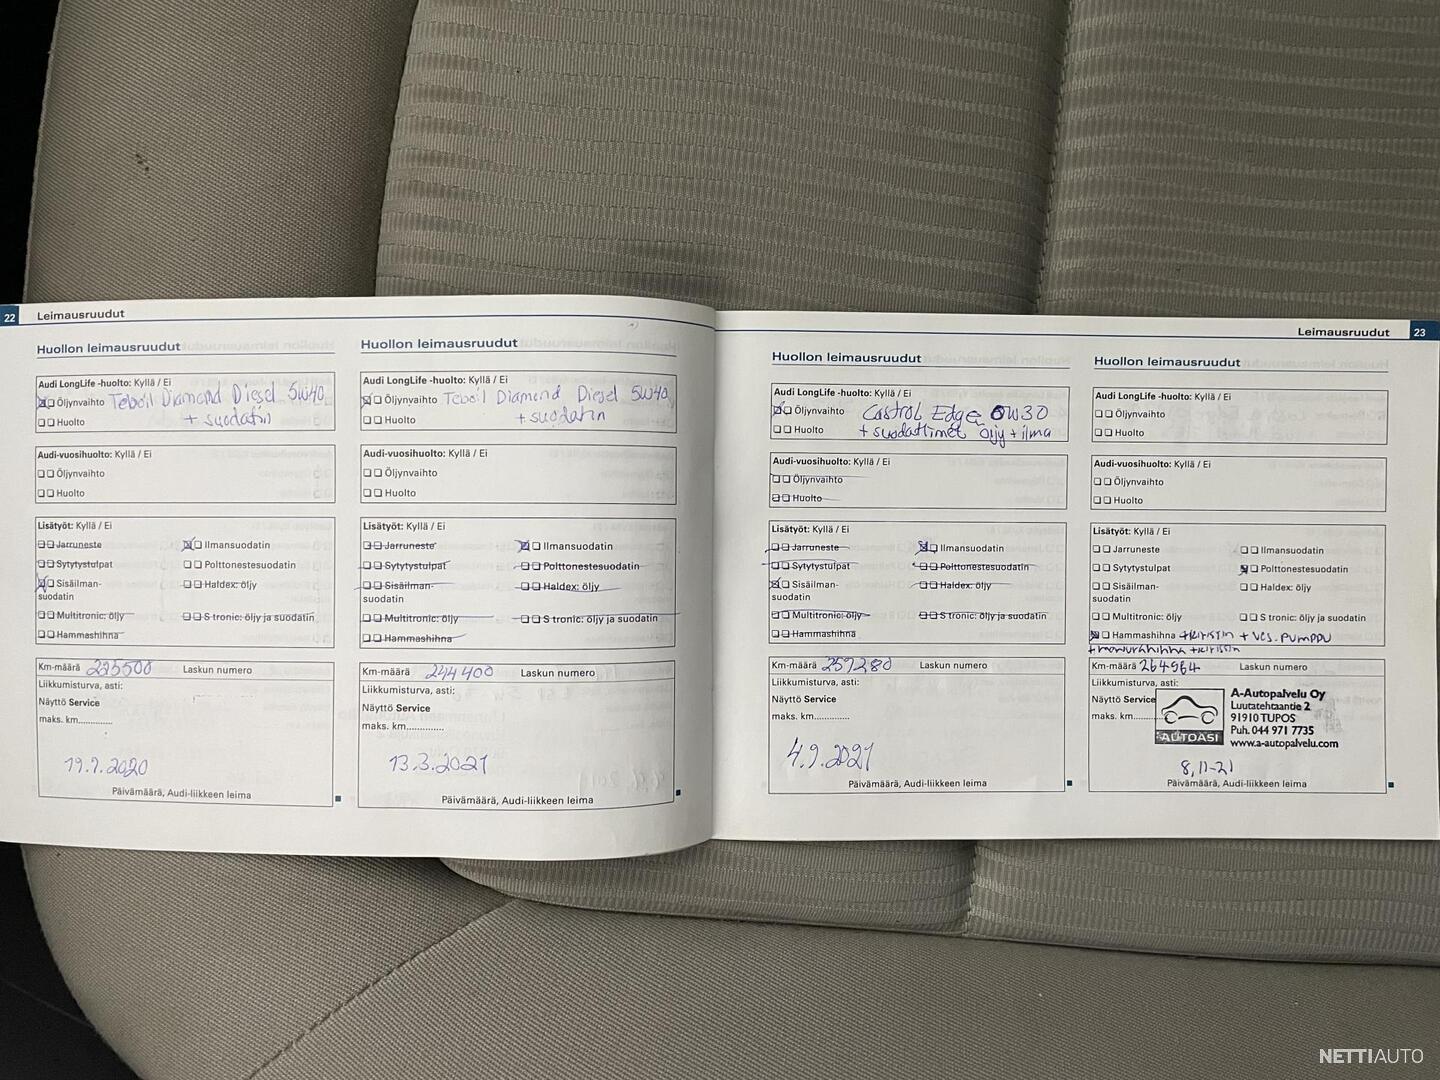 22 Leimausruudut
Huollon leimausruudut
Audi LongLife -huolto: Kyllä / Ei
Öljynvaihto Teboil Diamond Diesel 5W40
Huolto + suodatin
Audi-vuosihuolto: Kyllä / Ei
Öljynvaihto
Huolto
Lisätyöt: Kyllä / Ei
Jarruneste Ilmansuodatin
Sytytystulpat Polttonestesuodatin
Sisäilman- Haldex: öljy
suodatin
Multitronic: öljy S tronic: öljy ja suodatin
Hammashihna
Km-määrä 225500 Laskun numero
Liikkumisturva, asti:
Näyttö Service
maks. km..............
19.9.2020
Päivämäärä, Audi-liikkeen leima
Huollon leimausruudut
Audi LongLife -huolto: Kyllä / Ei
Öljynvaihto Teboil Diamond Diesel 5W40
Huolto + suodatin
Audi-vuosihuolto: Kyllä / Ei
Öljynvaihto
Huolto
Lisätyöt: Kyllä / Ei
Jarruneste Ilmansuodatin
Sytytystulpat Polttonestesuodatin
Sisäilman- Haldex: öljy
suodatin
Multitronic: öljy S tronic: öljy ja suodatin
Hammashihna
Km-määrä 244400 Laskun numero
Liikkumisturva, asti:
Näyttö Service
maks. km...............
13.3.2021
Päivämäärä, Audi-liikkeen leima
Leimausruudut 23
Huollon leimausruudut
Audi LongLife -huolto: Kyllä / Ei
Öljynvaihto Castrol Edge 0W30
Huolto + suodattimet öljy + ilma
Audi-vuosihuolto: Kyllä / Ei
Öljynvaihto
Huolto
Lisätyöt: Kyllä / Ei
Jarruneste Ilmansuodatin
Sytytystulpat Polttonestesuodatin
Sisäilman- Haldex: öljy
suodatin
Multitronic: öljy S tronic: öljy ja suodatin
Hammashihna
Km-määrä 259280 Laskun numero
Liikkumisturva, asti:
Näyttö Service
maks. km..............
4.9.2021
Päivämäärä, Audi-liikkeen leima
Huollon leimausruudut
Audi LongLife -huolto: Kyllä / Ei
Öljynvaihto
Huolto
Audi-vuosihuolto: Kyllä / Ei
Öljynvaihto
Huolto
Lisätyöt: Kyllä / Ei
Jarruneste Ilmansuodatin
Sytytystulpat Polttonestesuodatin
Sisäilman- Haldex: öljy
suodatin
Multitronic: öljy S tronic: öljy ja suodatin
Hammashihna +kiristin + ves.pumppu
+kiristin
Km-määrä 264964 Laskun numero
Liikkumisturva, asti:
Näyttö Service
maks. km..............
AUTOASI
A-Autopalvelu Oy
Luutatehtaantie 2
91910 TUPOS
Puh. 044 971 7735
www.a-autopalvelu.com
8,11-21
Päivämäärä, Audi-liikkeen leima
NETTIAUTO